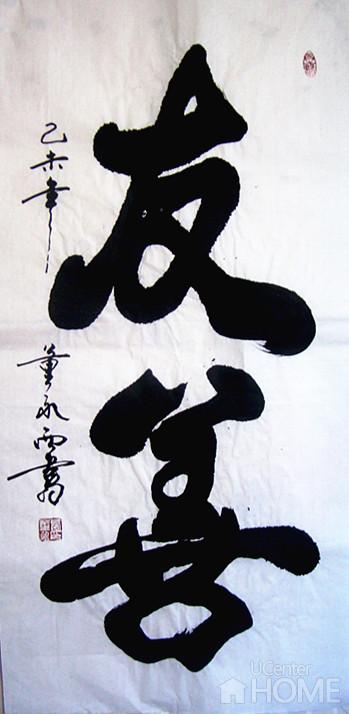 友善
乙未年
董永西書
UCenter
HOME